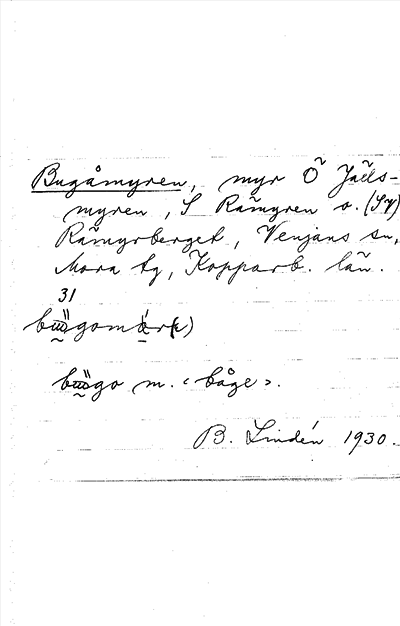 Bugåmyren, myr Ö Jälls-
myren, S Råmyren o. (SV)
Råmyrberget, Venjans sn,
Mora tg, Kopparb. län.
31
båge m. «båge».
B. Lindén 1930.